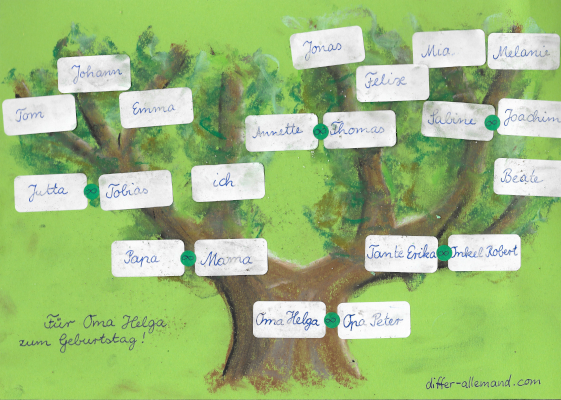 Jonas
Mia
Melanie
Johann
Felix
Tom
Emma
Annette ∞ Thomas
Sabine ∞ Joachim
Jutta ∞ Tobias
ich
Beate
Papa ∞ Mama
Tante Erika ∞ Onkel Robert
Oma Helga ∞ Opa Peter
Für Oma Helga
zum Geburtstag!
differ-allemand.com